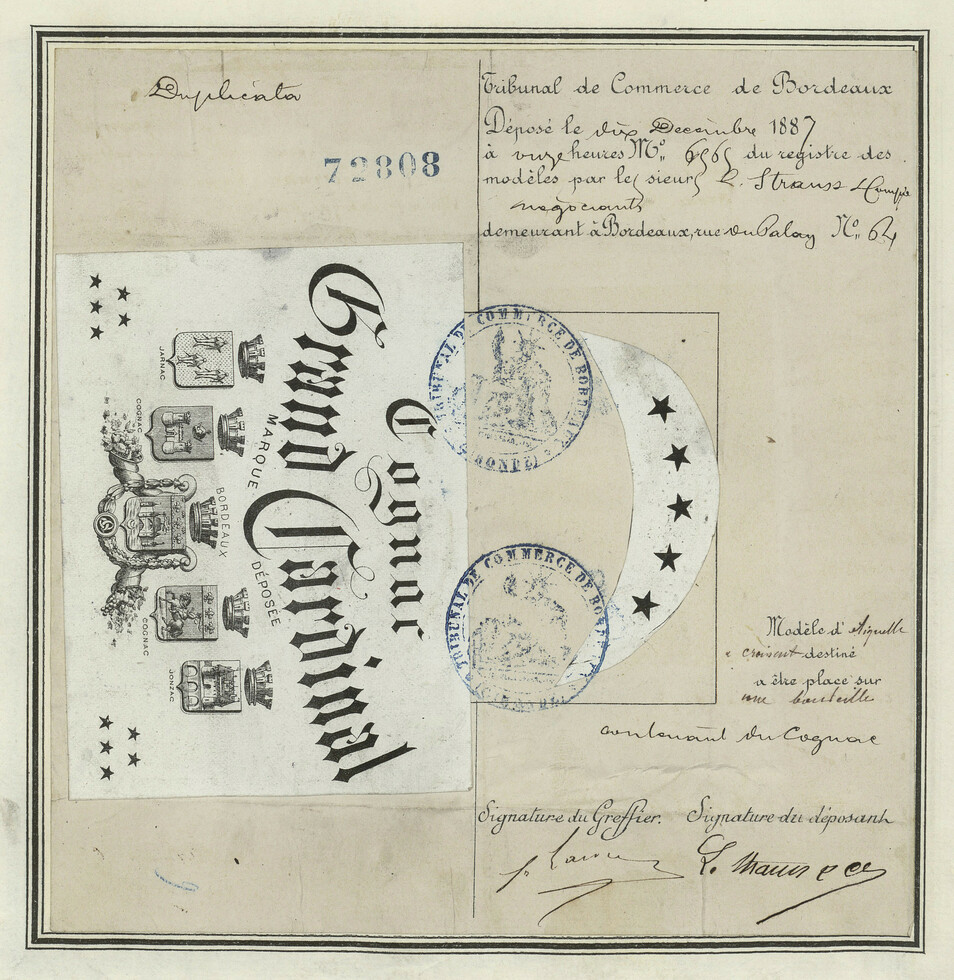 Duplicata
72808
Tribunal de Commerce de Bordeaux
Déposé le dix Decembre 1887
à onze heures Nº 6565 du registre des
modèles par les sieurs L. Strauss & Compie
negociants
demeurant à Bordeaux, rue du Palais Nº 64
Cognac
Grand Cardinal
MARQUE DÉPOSÉE
JARNAC
COGNAC
BORDEAUX
COGNAC
JONZAC
TRIBUNAL DE COMMERCE DE BORDEAUX
TRIBUNAL DE COMMERCE DE BORDEAUX
Modèle d'étiquette
croissant destiné
a être place sur
une bouteille
contenant du Cognac
Signature du Greffier. Signature du déposant
L. Strauss & Ce